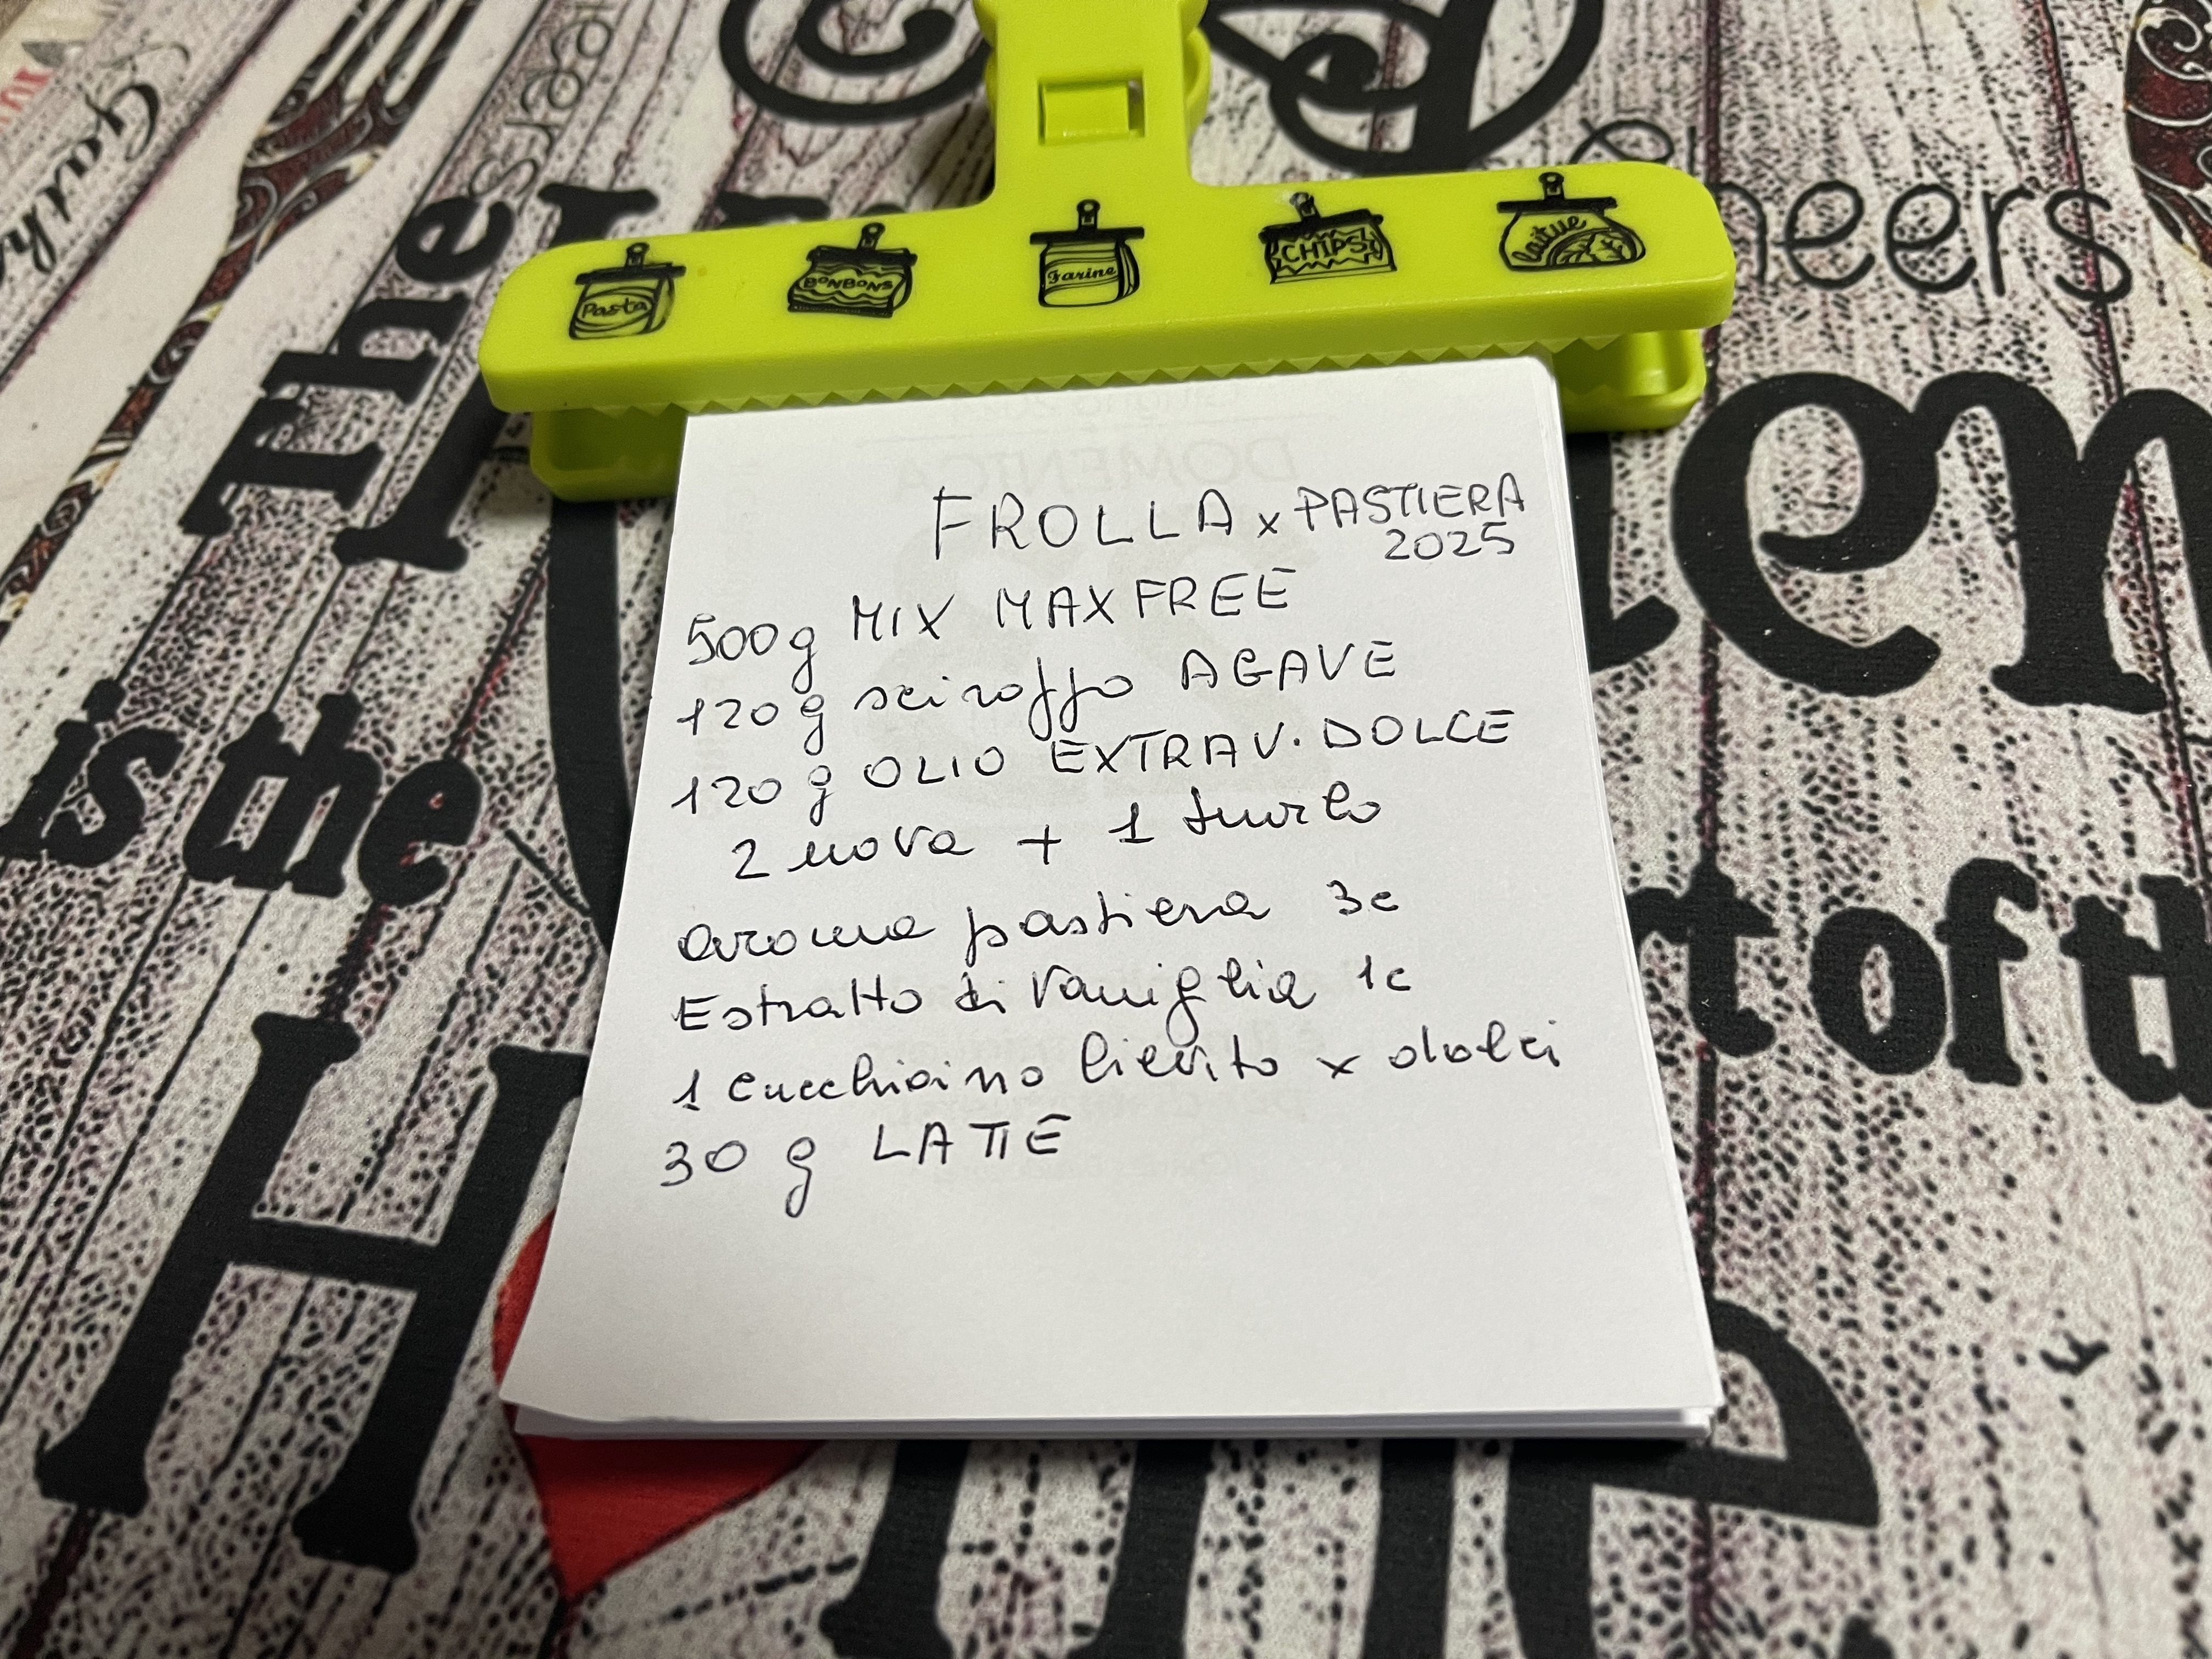 Pasta
BONBONS
Farine
CHIPS
laitue
FROLLA x PASTIERA
2025
500g MIX MAXFREE
120g sciroppo AGAVE
120g OLIO EXTRAV. DOLCE
2 uova + 1 tuorlo
aroma pastiera 3c
Estratto di Vaniglia 1c
1 cucchiaino lievito x dolci
30 g LATTE
DOMENICA
The
is the
rt of the
eers
neers